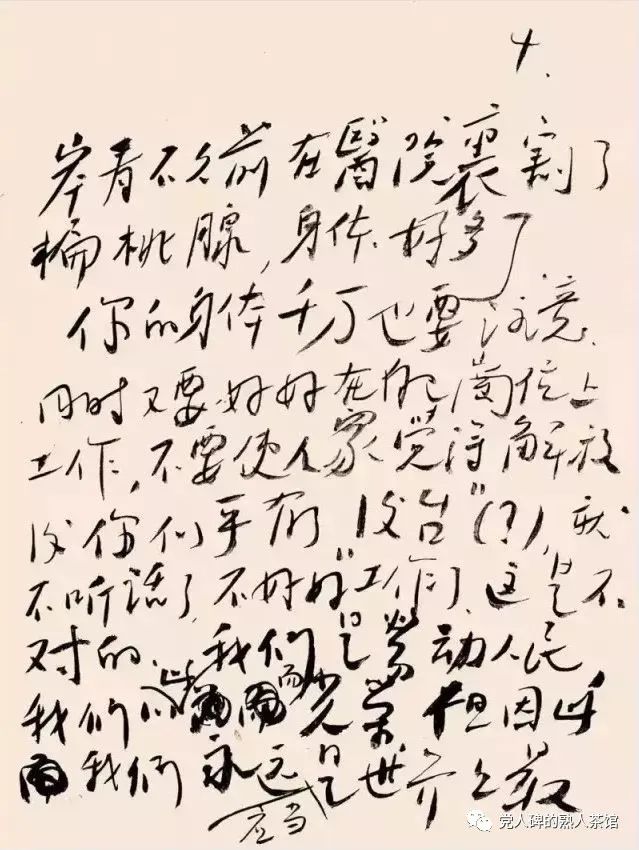 十.
岸青不久前在醫院裏割了
扁桃腺,身体好多了
你的身体千万也要注意.
同时又要好好在自己崗位上
工作,不要使人家觉得解放
后你们乎有“后台”(?),就
不听話了,不好好工作了.这是不
对的.我们是劳动人民
我们以此而光荣 但因此
我们永远应当是世界上最
党人碑的熟人茶馆